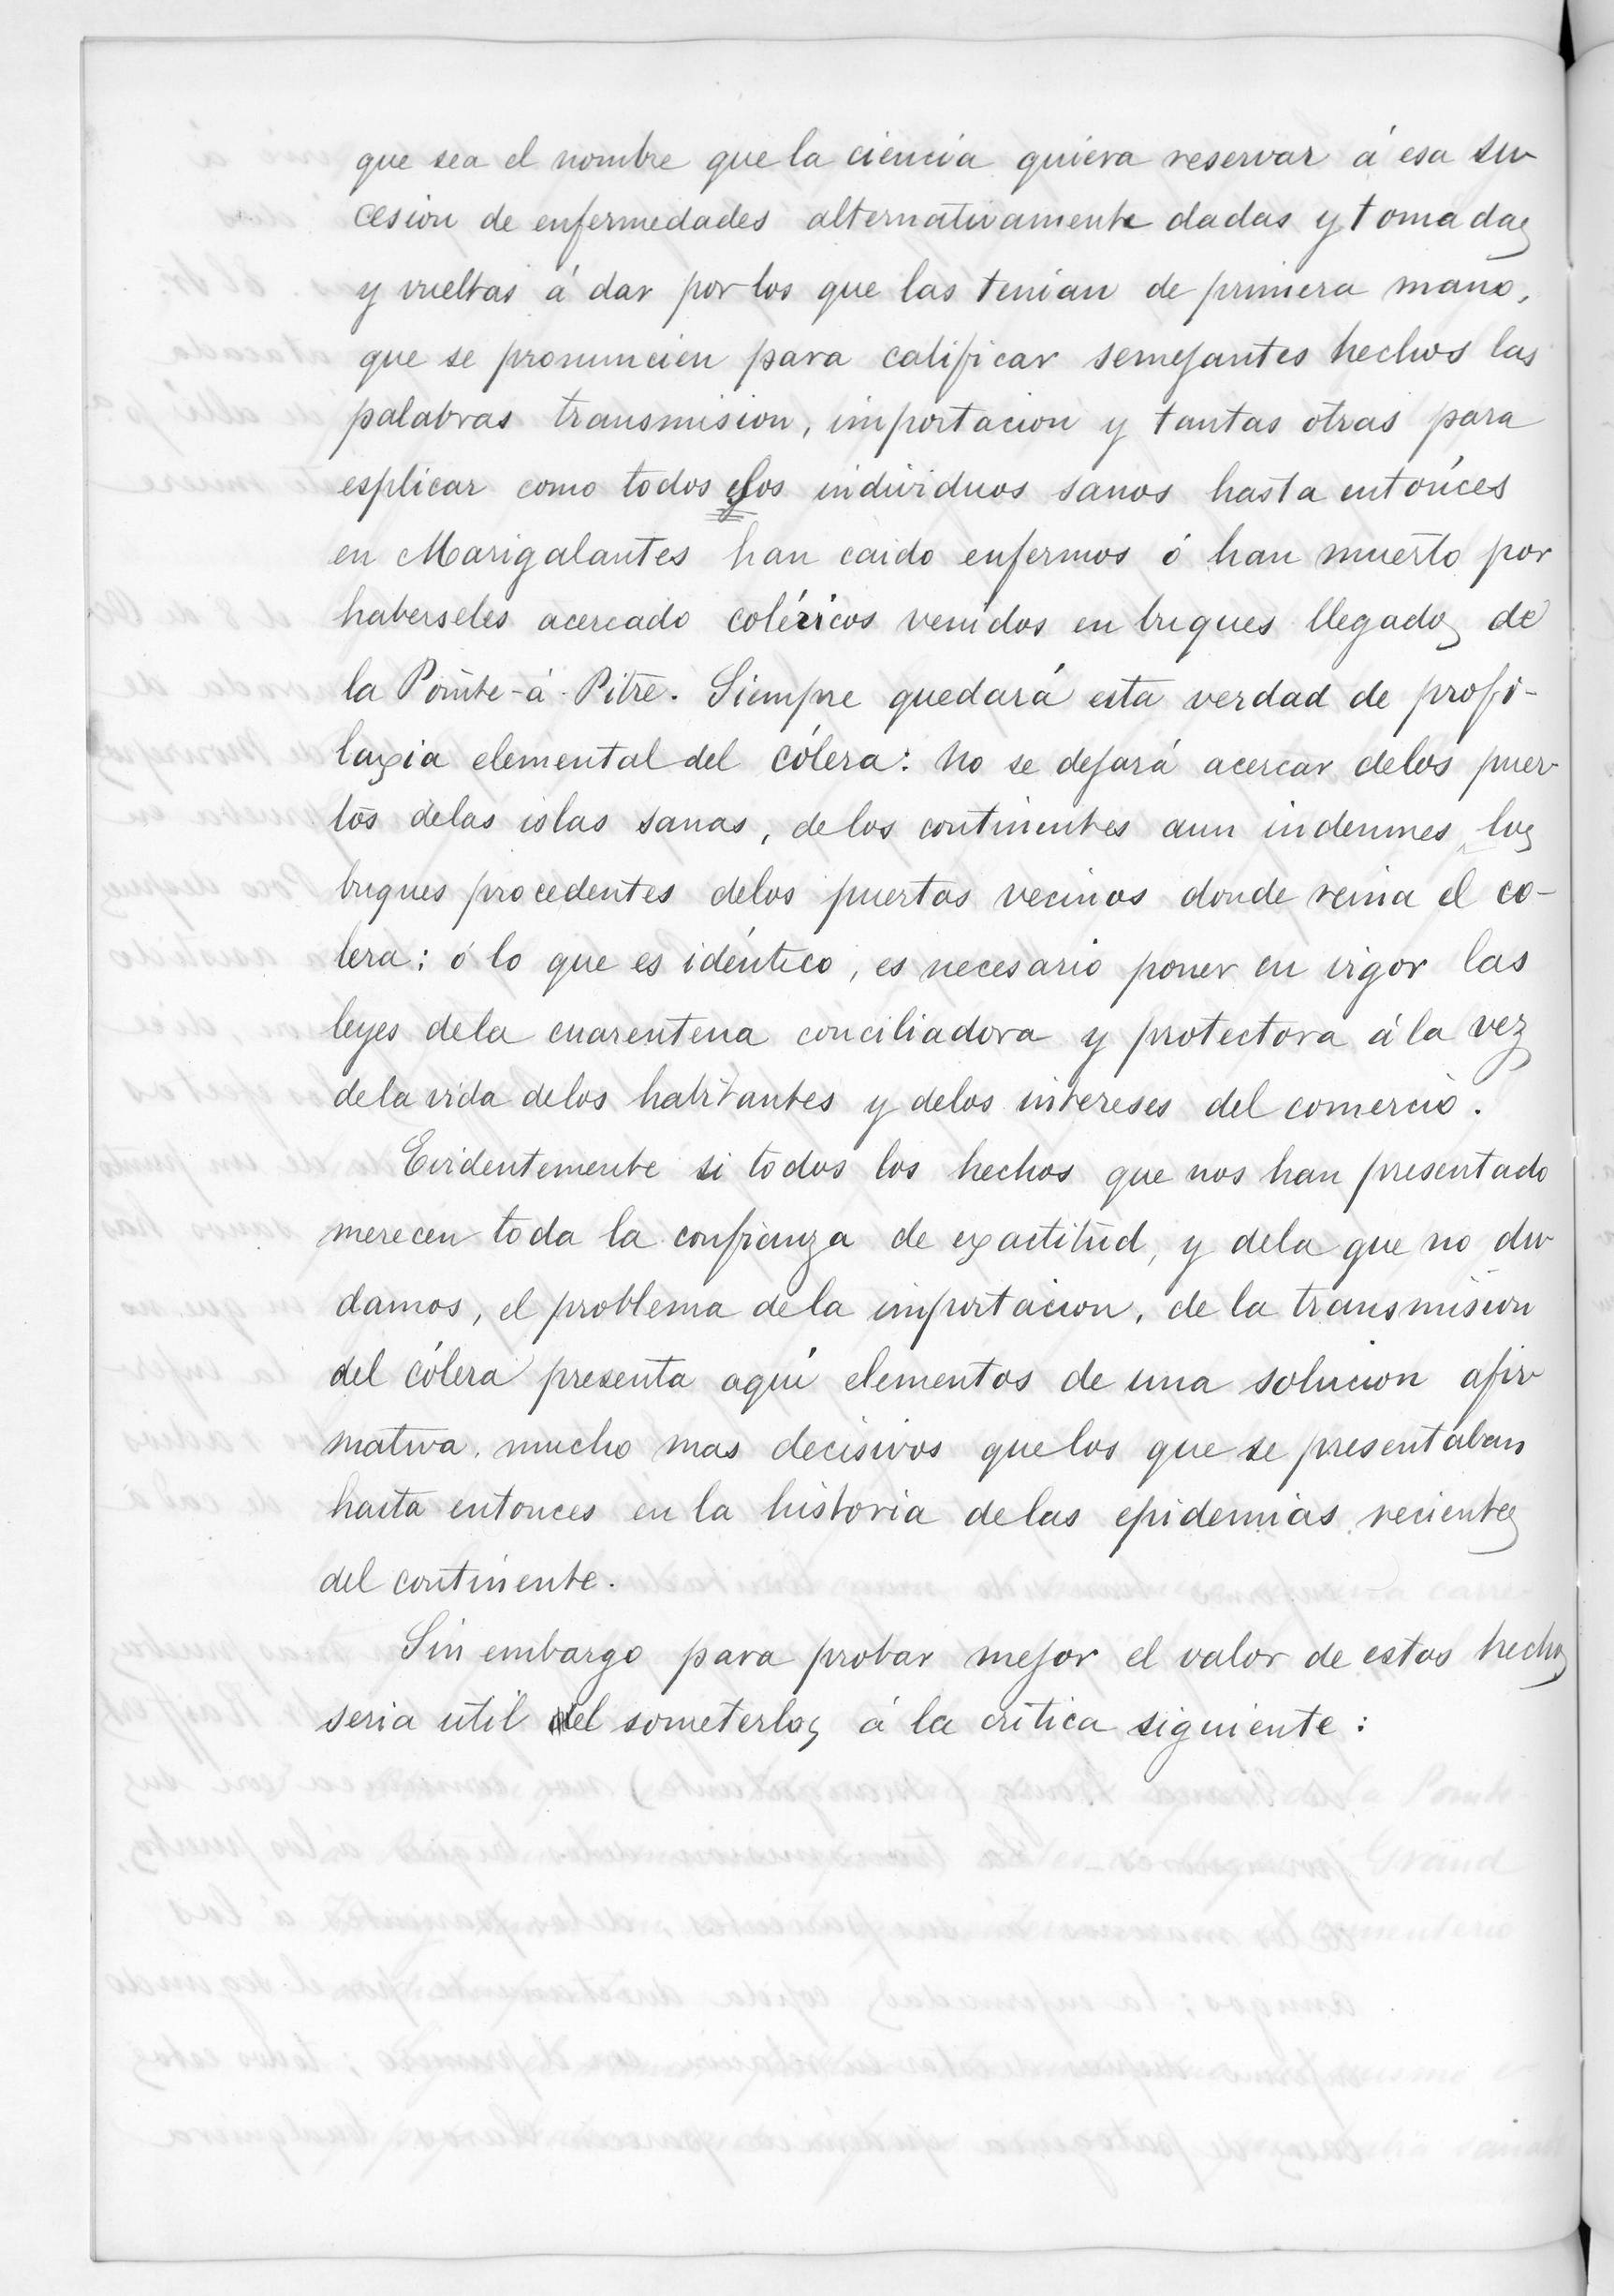 que sea el nombre que la ciencia quiera reservar á esa su-
cesion de enfermedades alternativamente dadas y tomadas
y vueltas á dar por los que las tenian de primera mano,
que se pronuncien para calificar semejantes hechos las
palabras transmision, importacion y tantas otras para
esplicar como todos esos individuos sanos hasta entónces
en Marigalantes han caido enfermos ó han muerto por
haberseles acercado coléricos venidos en buques llegados de
la Pointe-à-Pitre. Siempre quedará esta verdad de profi-
laxia elemental del cólera: No se dejará acercar delos puer-
tos delas islas sanas, de los continentes aun indemnes, los
buques procedentes delos puertos vecinos donde reina el co-
lera; ó lo que es idéntico, es necesario poner en vigor las
leyes dela cuarentena conciliadora y protectora á la vez
dela vida delos habitantes y delos intereses del comercio.
Evidentemente si todos los hechos que nos han presentado
merecen toda la confianza de exactitud, y dela que no du-
damos, el problema dela importacion, de la transmision
del cólera presenta aquí elementos de una solucion afir-
mativa, mucho mas decisivos que los que se presentaban
hasta entonces en la historia delas epidemias recientes
del continente.
Sin embargo para probar mejor el valor de estos hechos
seria util el someterlos á la critica siguiente: